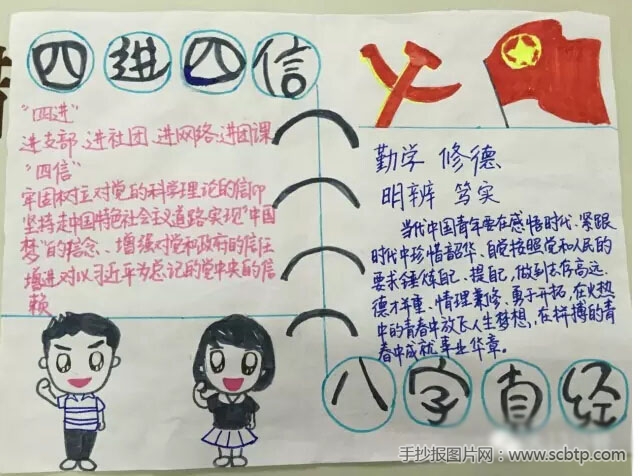 四进四信
"四进"
进支部、进社团、进网络、进团课
"四信"
牢固树立对党的科学理论的信仰
坚持走中国特色社会主义道路实现"中国
梦"的信念、增强对党和政府的信任
增进对以习近平为总记的党中央的信
赖
勤学 修德
明辨 笃实
当代中国青年要在感悟时代、紧跟
时代中珍惜韶华、自觉按照党和人民的
要求锤炼自己、提自己,做到志存高远、
德才并重、情理兼修、勇于开拓,在火热
中的青春中放飞人生梦想,在拼搏的青
春中成就事业华章。
八字真经
手抄报图片网:www.scbtp.com